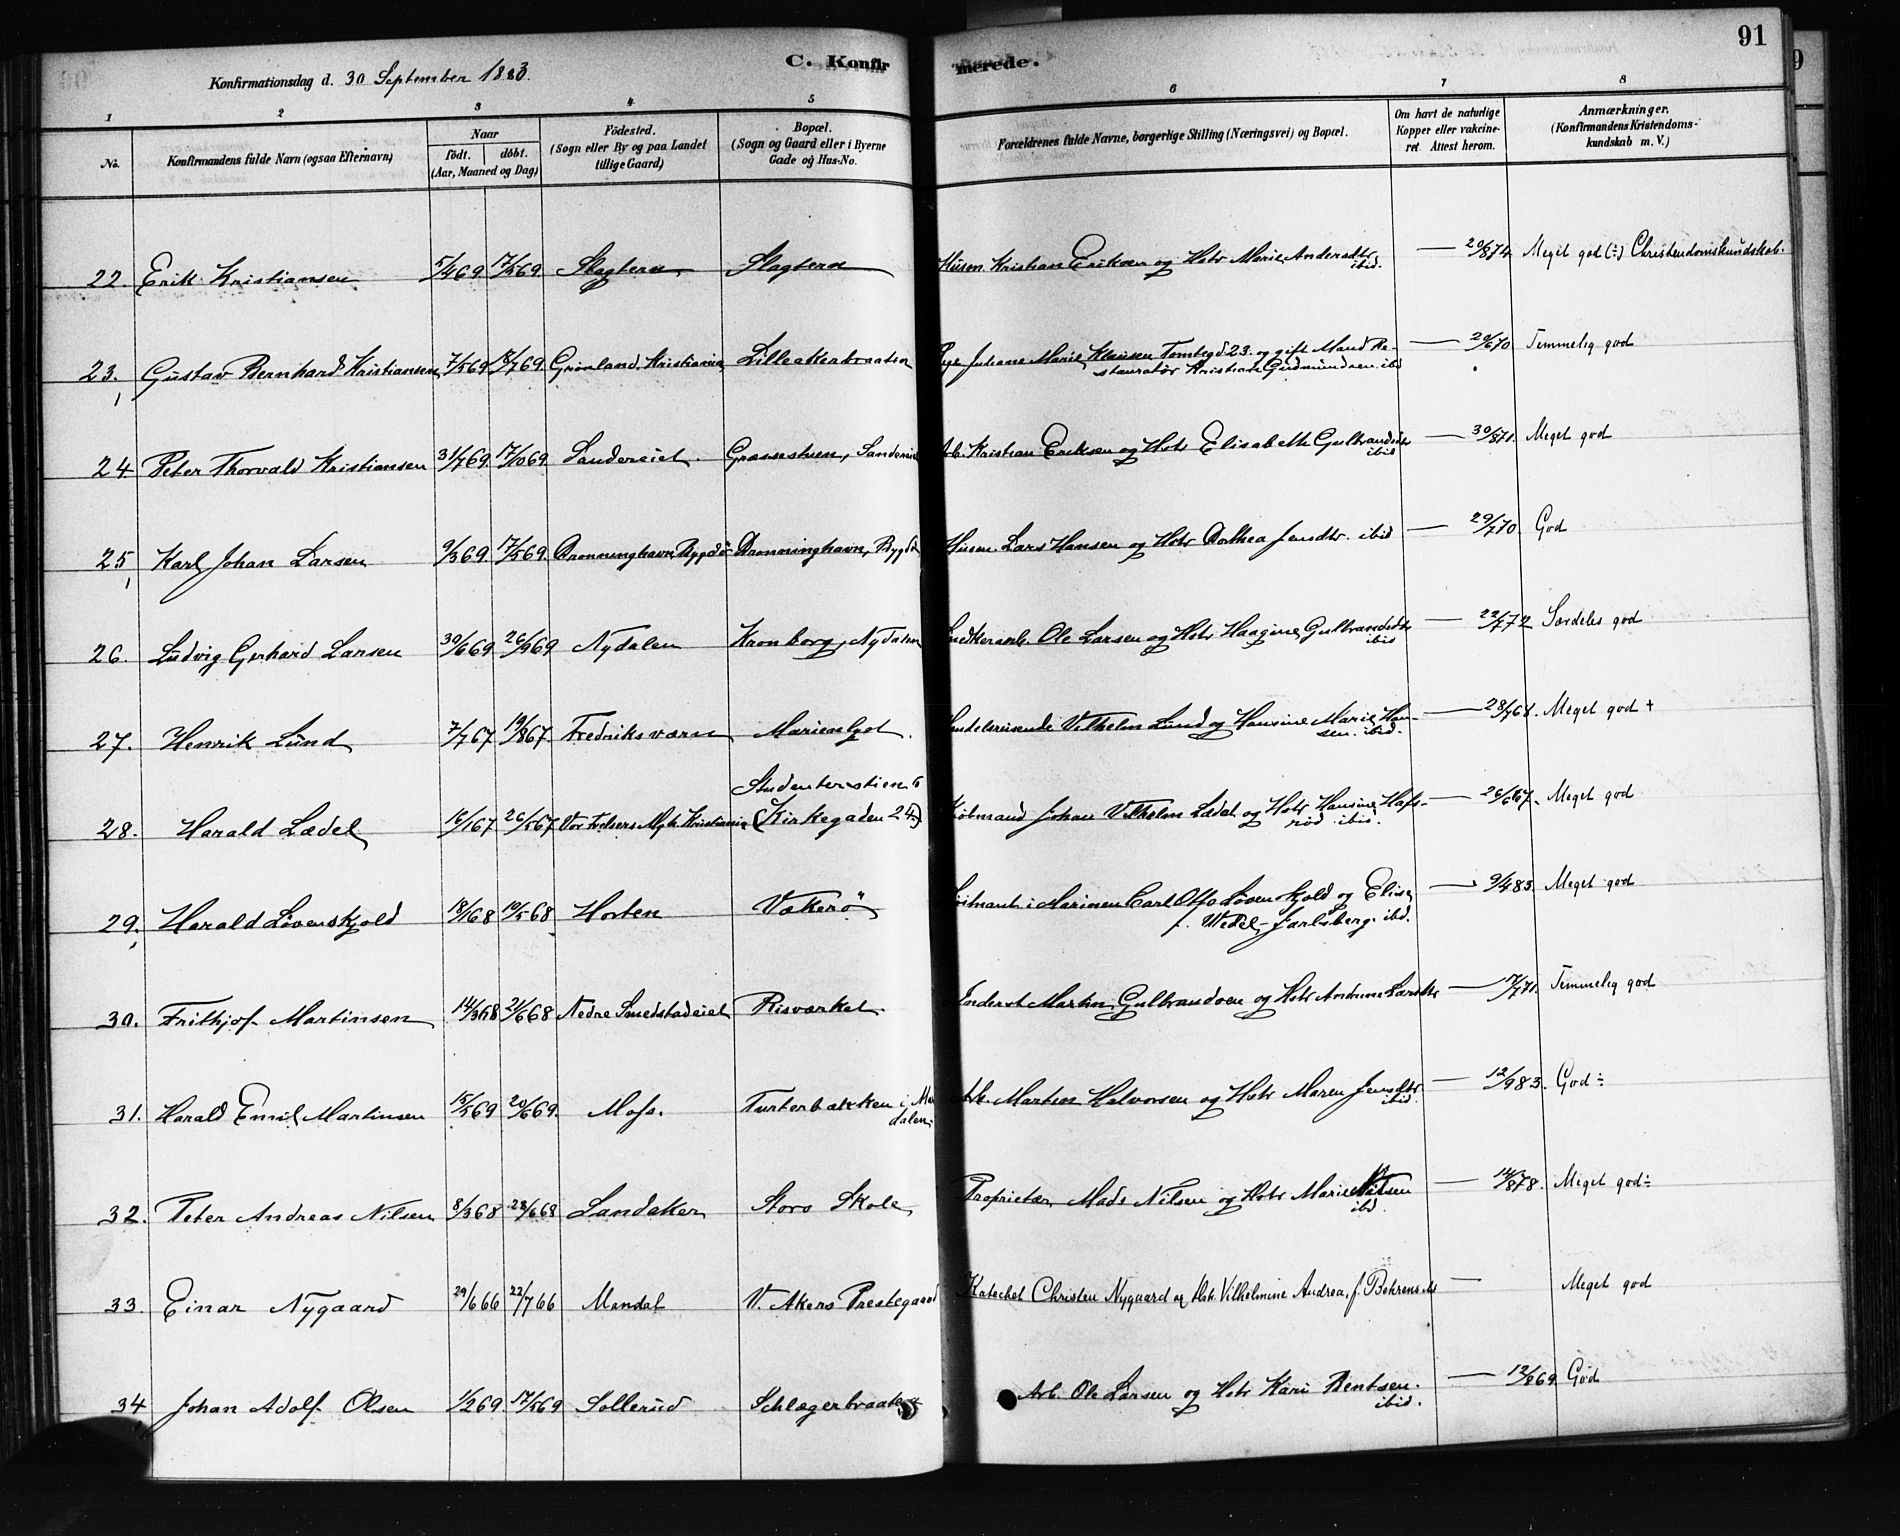 91
C. Konfirmerede.
Konfirmationsdag d. 30 September 1883.
1 2 3 4 5 6 7 8
No. Konfirmandens fulde Navn (ogsaa Efternavn) Naar født. døbt. (Aar, Maaned og Dag) Födested. (Sogn eller By og paa Landet tillige Gaard) Bopæl. (Sogn og Gaard eller i Byerne Gade og Hus-No. Forældrenes fulde Navne, borgerlige Stilling (Næringsvei) og Bopæl. Om havt de naturlige Kopper eller vakcineret. Attest herom. Anmærkninger. (Konfirmandens Kristendomskundskab m. V.)
22. Erik Kristiansen 5/4 69 17/5 69 Slagtern Slagtern Husm Kristian Eriksen og Hstr Marie Andersdtr ibid. — 20/8 74. Meget god (÷) Christendomskundskab.
23. Gustav Bernhard Kristiansen 7/5 69 18/7 69 Grönland, Kristiania Lilleakerbraaten Pige Juliane Marie Klausen Tomtegd 23. og gift Mand Restauratör Kristian Gudmundsen ibd — 29/6 70 Temmelig god
24. Peter Thorvald Kristiansen 31/7 69 17/10 69 Sandereiet Grassestuen, Arb. Kristian Eriksen og Hstr Elisabeth Gulbrandsdtr ibid — 30/8 71. Meget god
25 Karl Johan Larsen 9/3 69 17/5 69 Dronninghavn Bygdö Dronninghavn, Bygdö Husm. Lars Hansen og Hstr Dorthea Jensdtr. ibid — 29/7 70. God
26. Ludvig Gerhard Larsen 30/6 69 26/9 69 Nydalen Kronborg, Nydalen Snedkerarb. Ole Larsen og Hstr Haagine Gulbrandsdtr ibid — 22/7 72 Særdeles god
27. Henrik Lund 7/7 67 19/8 67. Fredriksværn Marienlyst. Handelsreisende Vilhelm Lund og Hansine Marie Hansen. ibid. — 28/7 68. Meget god +
28. Harald Lædel 16/1 67 26/5 67 Vor Frelsers Mgh. Kristiania Studenterstien 6 (Kirkegaden 24) Kjöbmand Johan Vilhelm Lædel og Hstr Hansine Hafsröd ibid. — 26/6 67. Meget god
29. Harald Lövenskjold 18/1 68 10/5 68 Horten Vækerö Löitnant i Marinen Carl Otto Lövenskjold og Elise f. Wedel-Jarlsberg. ibd. — 9/4 83. Meget god
30. Frithjof Martinsen 14/3 68 21/6 68 Nedre Smedstadeiet Risværket. Inderst Martin Gulbrandsen og Hstr Andrine Larsdtr — 17/7 71. Temmelig god
31. Harald Emil Martinsen 15/5 69 20/6 69. Moss. Turterbakken i dalen. Arb. Martin Halvorsen og Hstr Maren Jensdtr. ibid. — 12/9 83. God ÷
32. Peter Andreas Nilsen 8/3 68 28/6 68 Sandaker Storo Skole Proprietær Mads Nilsen og Hstr Marie Nilsen ibd. — 14/8 78. Meget god ÷
33. Einar Nygaard 29/6 66 22/7 66 Mandal V. Akers Prestegaard Katechet Christen Nygaard og Hstr. Vilhelmine Andrea, f. Behrens — Meget god
34 Johan Adolf Olsen 1/2 69. 17/5 69 Sollerud Schlægerbraaten Arb. Ole Larsen og Hstr Kari Bentsen. ibid. — 12/8 69 God